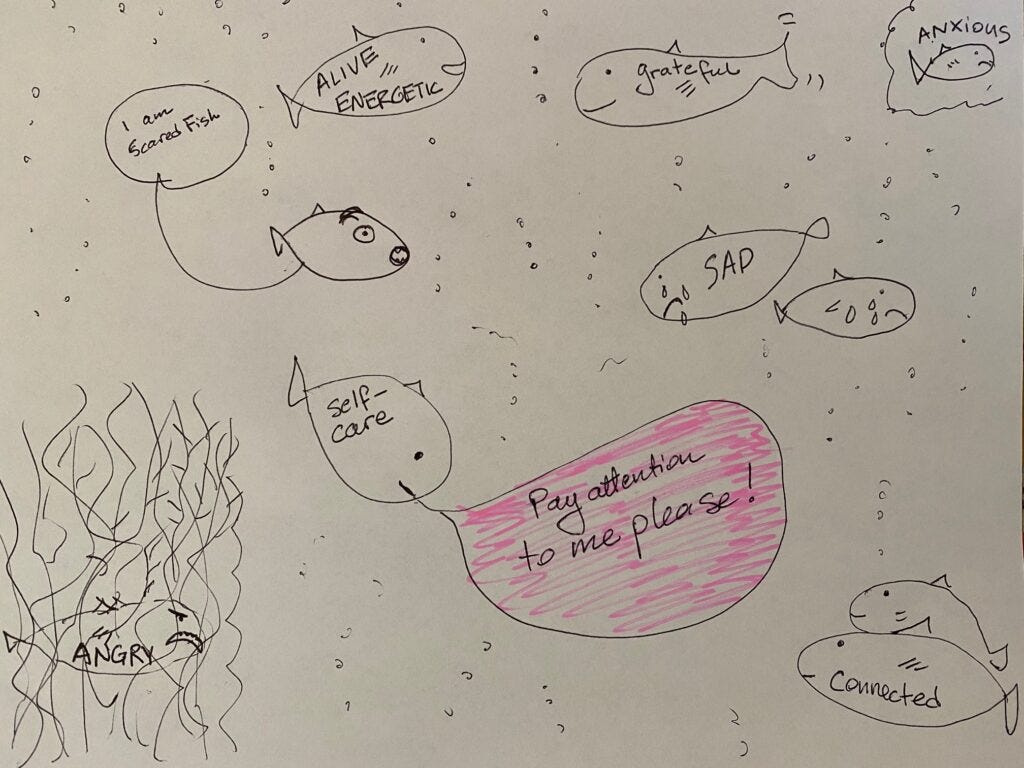 ALIVE
ENERGETIC
grateful
ANXIOUS
I am
Scared Fish
SAD
self-
care
Pay attention
to me please!
ANGRY
Connected